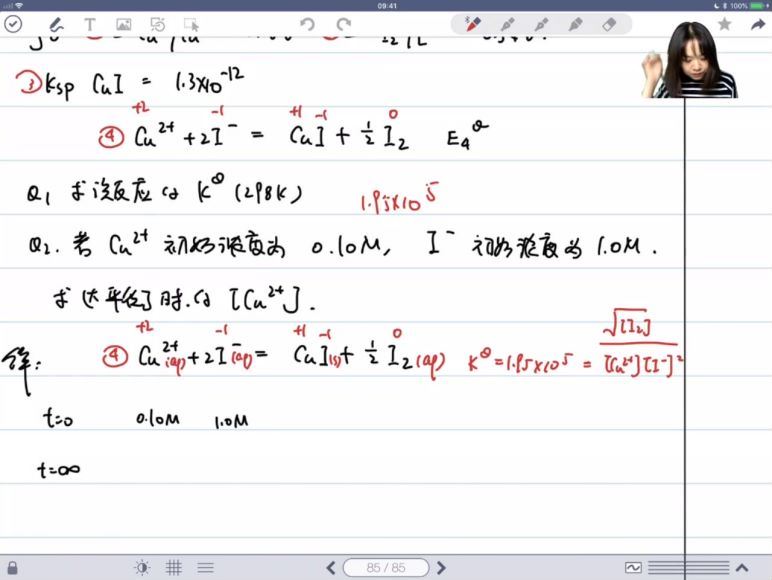 09:41
100%
③ Ksp CuI = 1.3×10⁻¹²
+2 -1 +1 -1 0
④ Cu²⁺ + 2I⁻ = CuI + ½ I₂ E₄^θ
Q₁ 求该反应的 K^θ (298K) 1.95×10⁵
Q₂. 若 Cu²⁺ 初始浓度为 0.10M, I⁻ 初始浓度为 1.0M.
求达平衡时的 [Cu²⁺].
+2 -1 +1 -1 0
解: ④ Cu²⁺(aq) + 2I⁻(aq) = CuI(s) + ½ I₂(aq) K^θ = 1.95×10⁵ = √[I₂] / [Cu²⁺][I⁻]²
t=0 0.10M 1.0M
t=∞
85 / 85